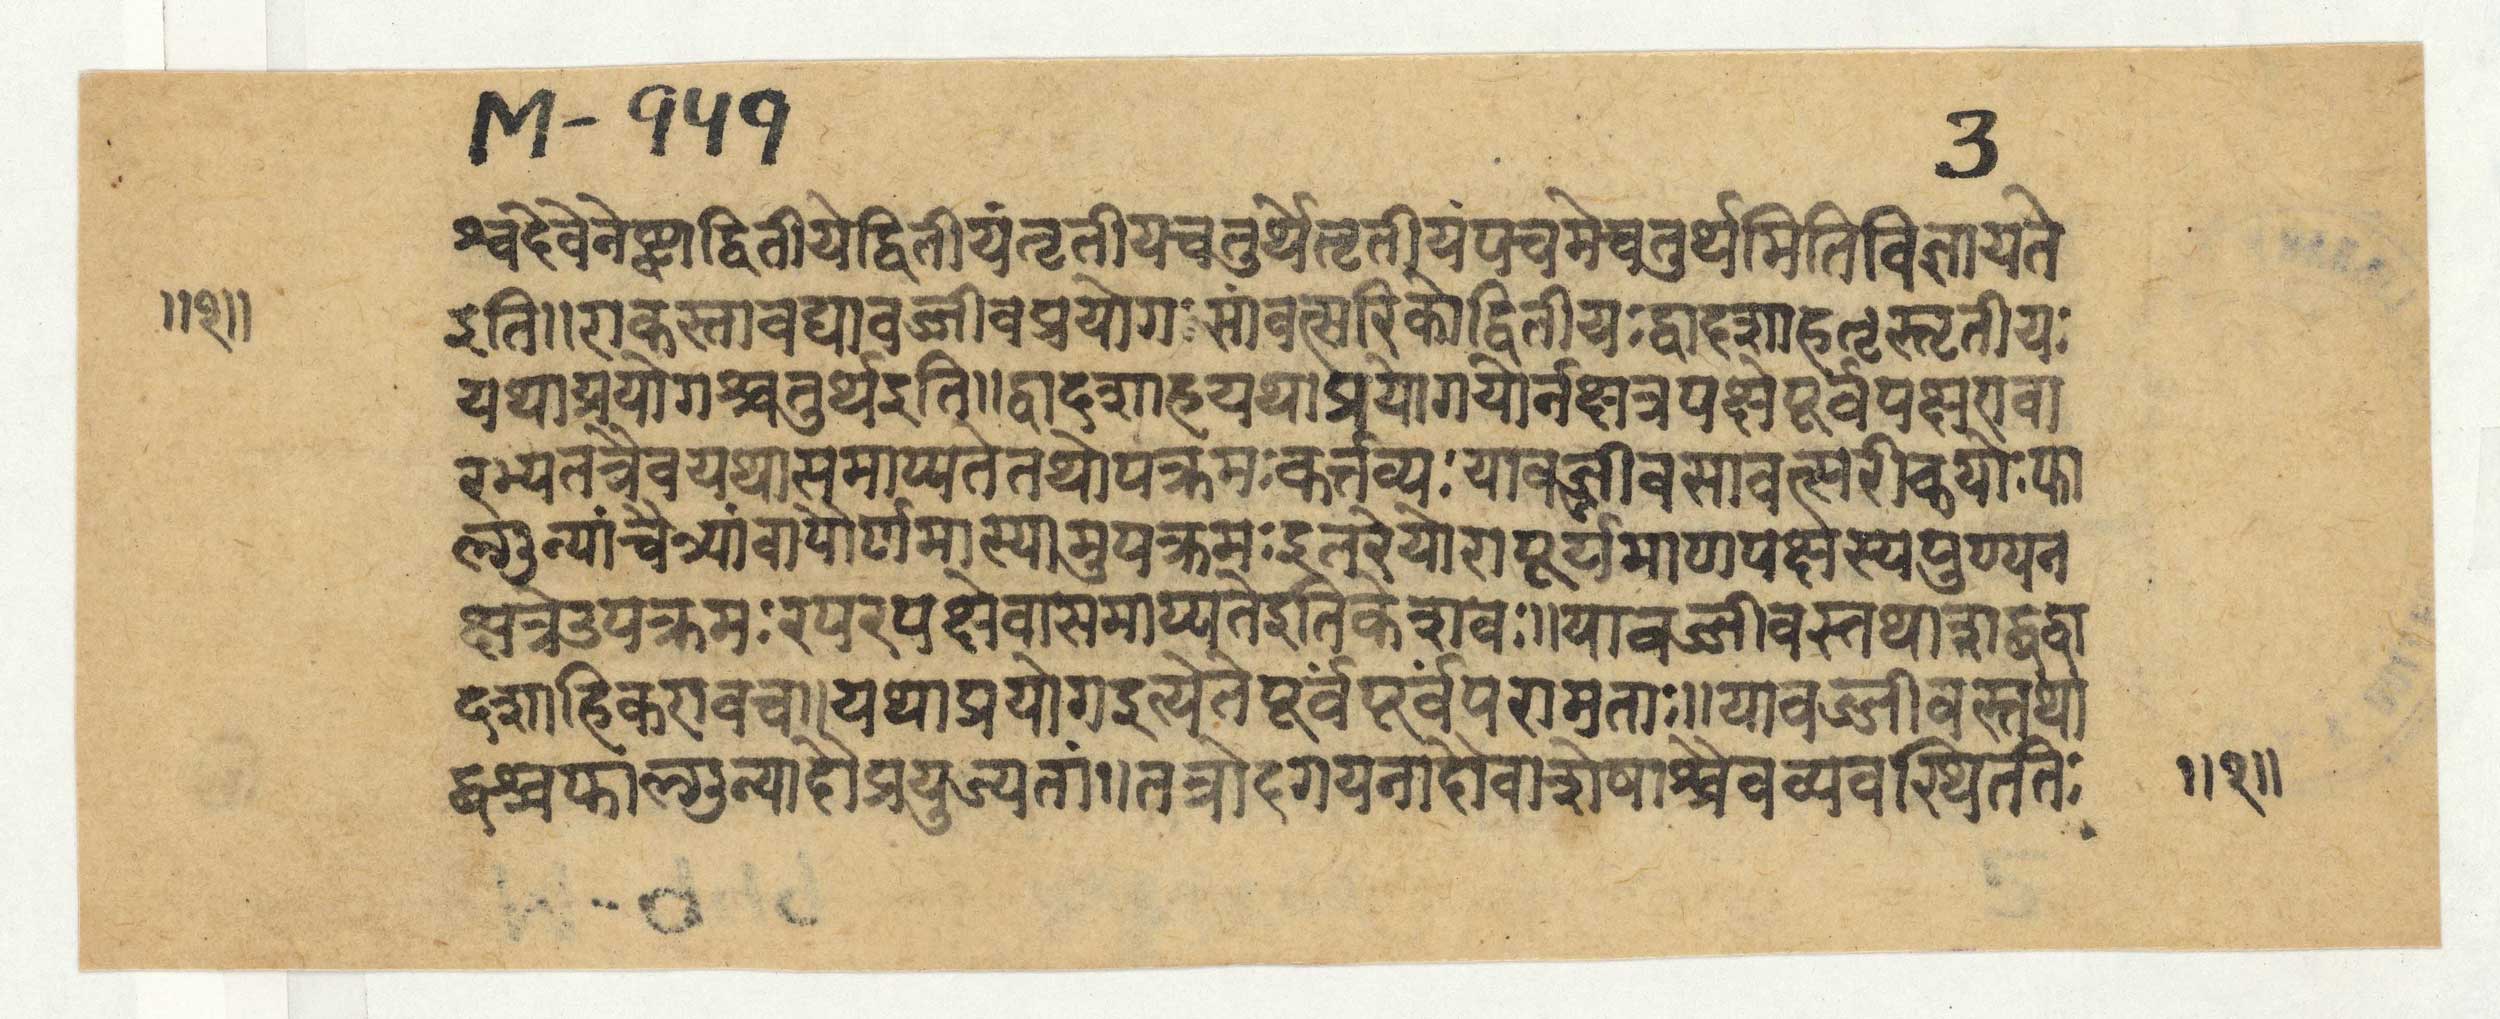 M-१५१
3
श्वदेवेनेष्ट्वाद्वितीयेद्वितीयंतृतीयचतुर्थेतृतीयंपञ्चमेचतुर्थमितिविज्ञायते
॥२॥
इति॥राकस्तावद्यावज्जीवप्रयोगःसांवत्सरिकोद्वितीयःद्वादशाहतृस्तृतीयः
यथाप्रयोगश्चतुर्थइति॥द्वादशाहयथाप्रयोगयोर्नक्षत्रपक्षेपूर्वपक्षरावा
रभ्यतत्रैवयथासमाप्यतेतथोपक्रमःकर्त्तव्यःयावज्जीवसावत्सरीकयोःफा
ल्गुन्यांचैत्र्यांवापौर्णमास्यामुपक्रमःइतरेयोरापूर्यमाणपक्षस्यपुण्यन
क्षत्रेउपक्रमःरपरपक्षेवासमाप्यतेइतिकेशवः॥यावज्जीवस्तथाब्दाद्वद्वा
दशाहिकरावचा।यथाप्रयोगइत्येतेपूर्वंपूर्वंपरामताः॥यावज्जीवस्तथा
द्वश्चफाल्गुन्यादौप्रयुज्यतां॥तत्रोदगयनादौवाशेषाश्चैवव्यवस्थिततिः
॥२॥